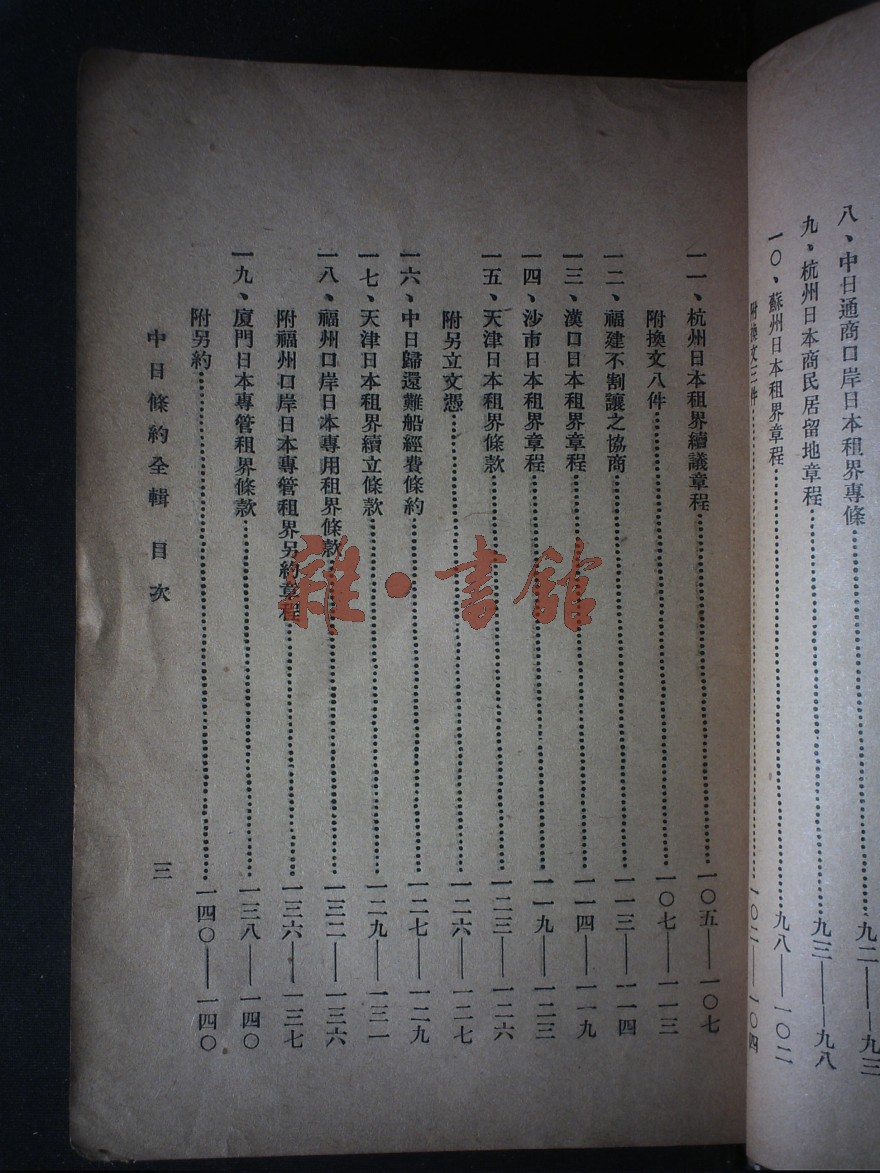 八、中日通商口岸日本租界專條……九二——九三
九、杭州日本商民居留地章程……九三——九八
一〇、蘇州日本租界章程……九八——一〇二
附換文三件……一〇二——一〇四
一一、杭州日本租界續議章程……一〇五——一〇七
附換文八件……一〇七——一一三
一二、福建不割讓之協商……一一三——一一四
一三、漢口日本租界章程……一一四——一一九
一四、沙市日本租界章程……一一九——一二三
一五、天津日本租界條款……一二三——一二六
附另立文憑……一二六——一二七
一六、中日歸還難船經費條約……一二七——一二九
一七、天津日本租界續立條款……一二九——一三一
一八、福州口岸日本專用租界條款……一三二——一三六
附福州口岸日本專管租界另約章程……一三六——一三七
一九、廈門日本專管租界條款……一三八——一四〇
附另約……一四〇——一四〇
中日條約全輯 目次 三
雜·書館